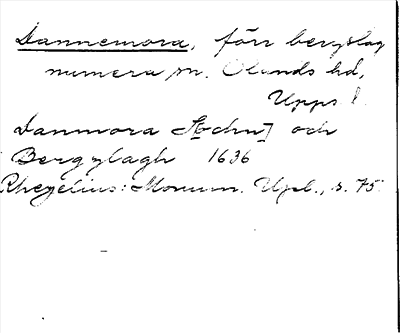 Dannemora, förr bergslag
numera sn. Olands hd,
Upps l.
Danmora Sochn] och
Bergzlagh 1636
Rhezelius: Monum. Upl., s. 75.